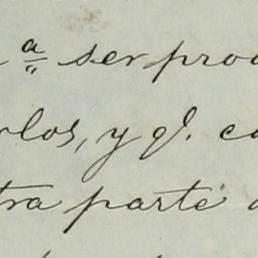 a ser prod
rlos, y qe. ca
tra parte